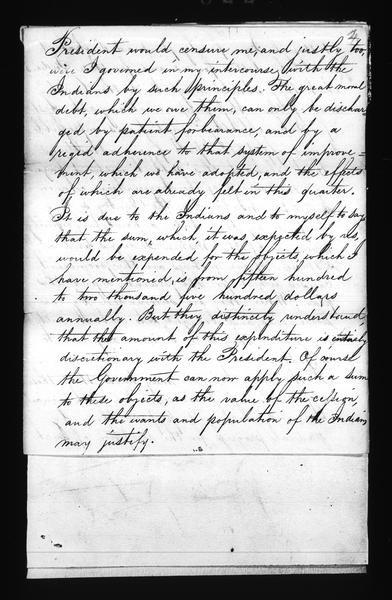 2
President would censure me, and justly too,
were I governed in my intercourse with the
Indians by such principles. The great moral
debt, which we owe them, can only be dischar
ged by patient forbearance, and by a
regid adherence to that system of improve-
ment, which we have adopted, and the effects
of which are already felt in this quarter.
It is due to the Indians and to myself to say,
that the sum, which, it was, expected by us,
would be expended for the objects, which I
have mentioned, is from fifteen hundred
to two thousand five hundred dollars
annually. But they distinctly understood
that the amount of this expenditure is entirely
discretionary with the President. Of course
the Government can now apply such a sum
to these objects, as the value of the cession,
and the wants and population of the Indians
may justify.